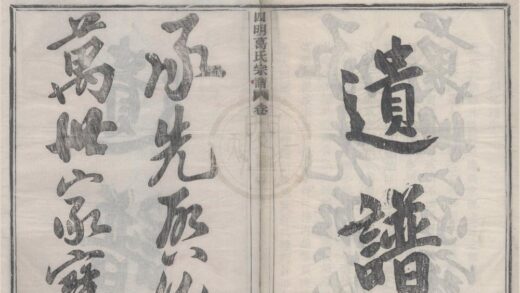 遺譜
四明葛氏宗譜 卷
承先啟後
萬世家寶